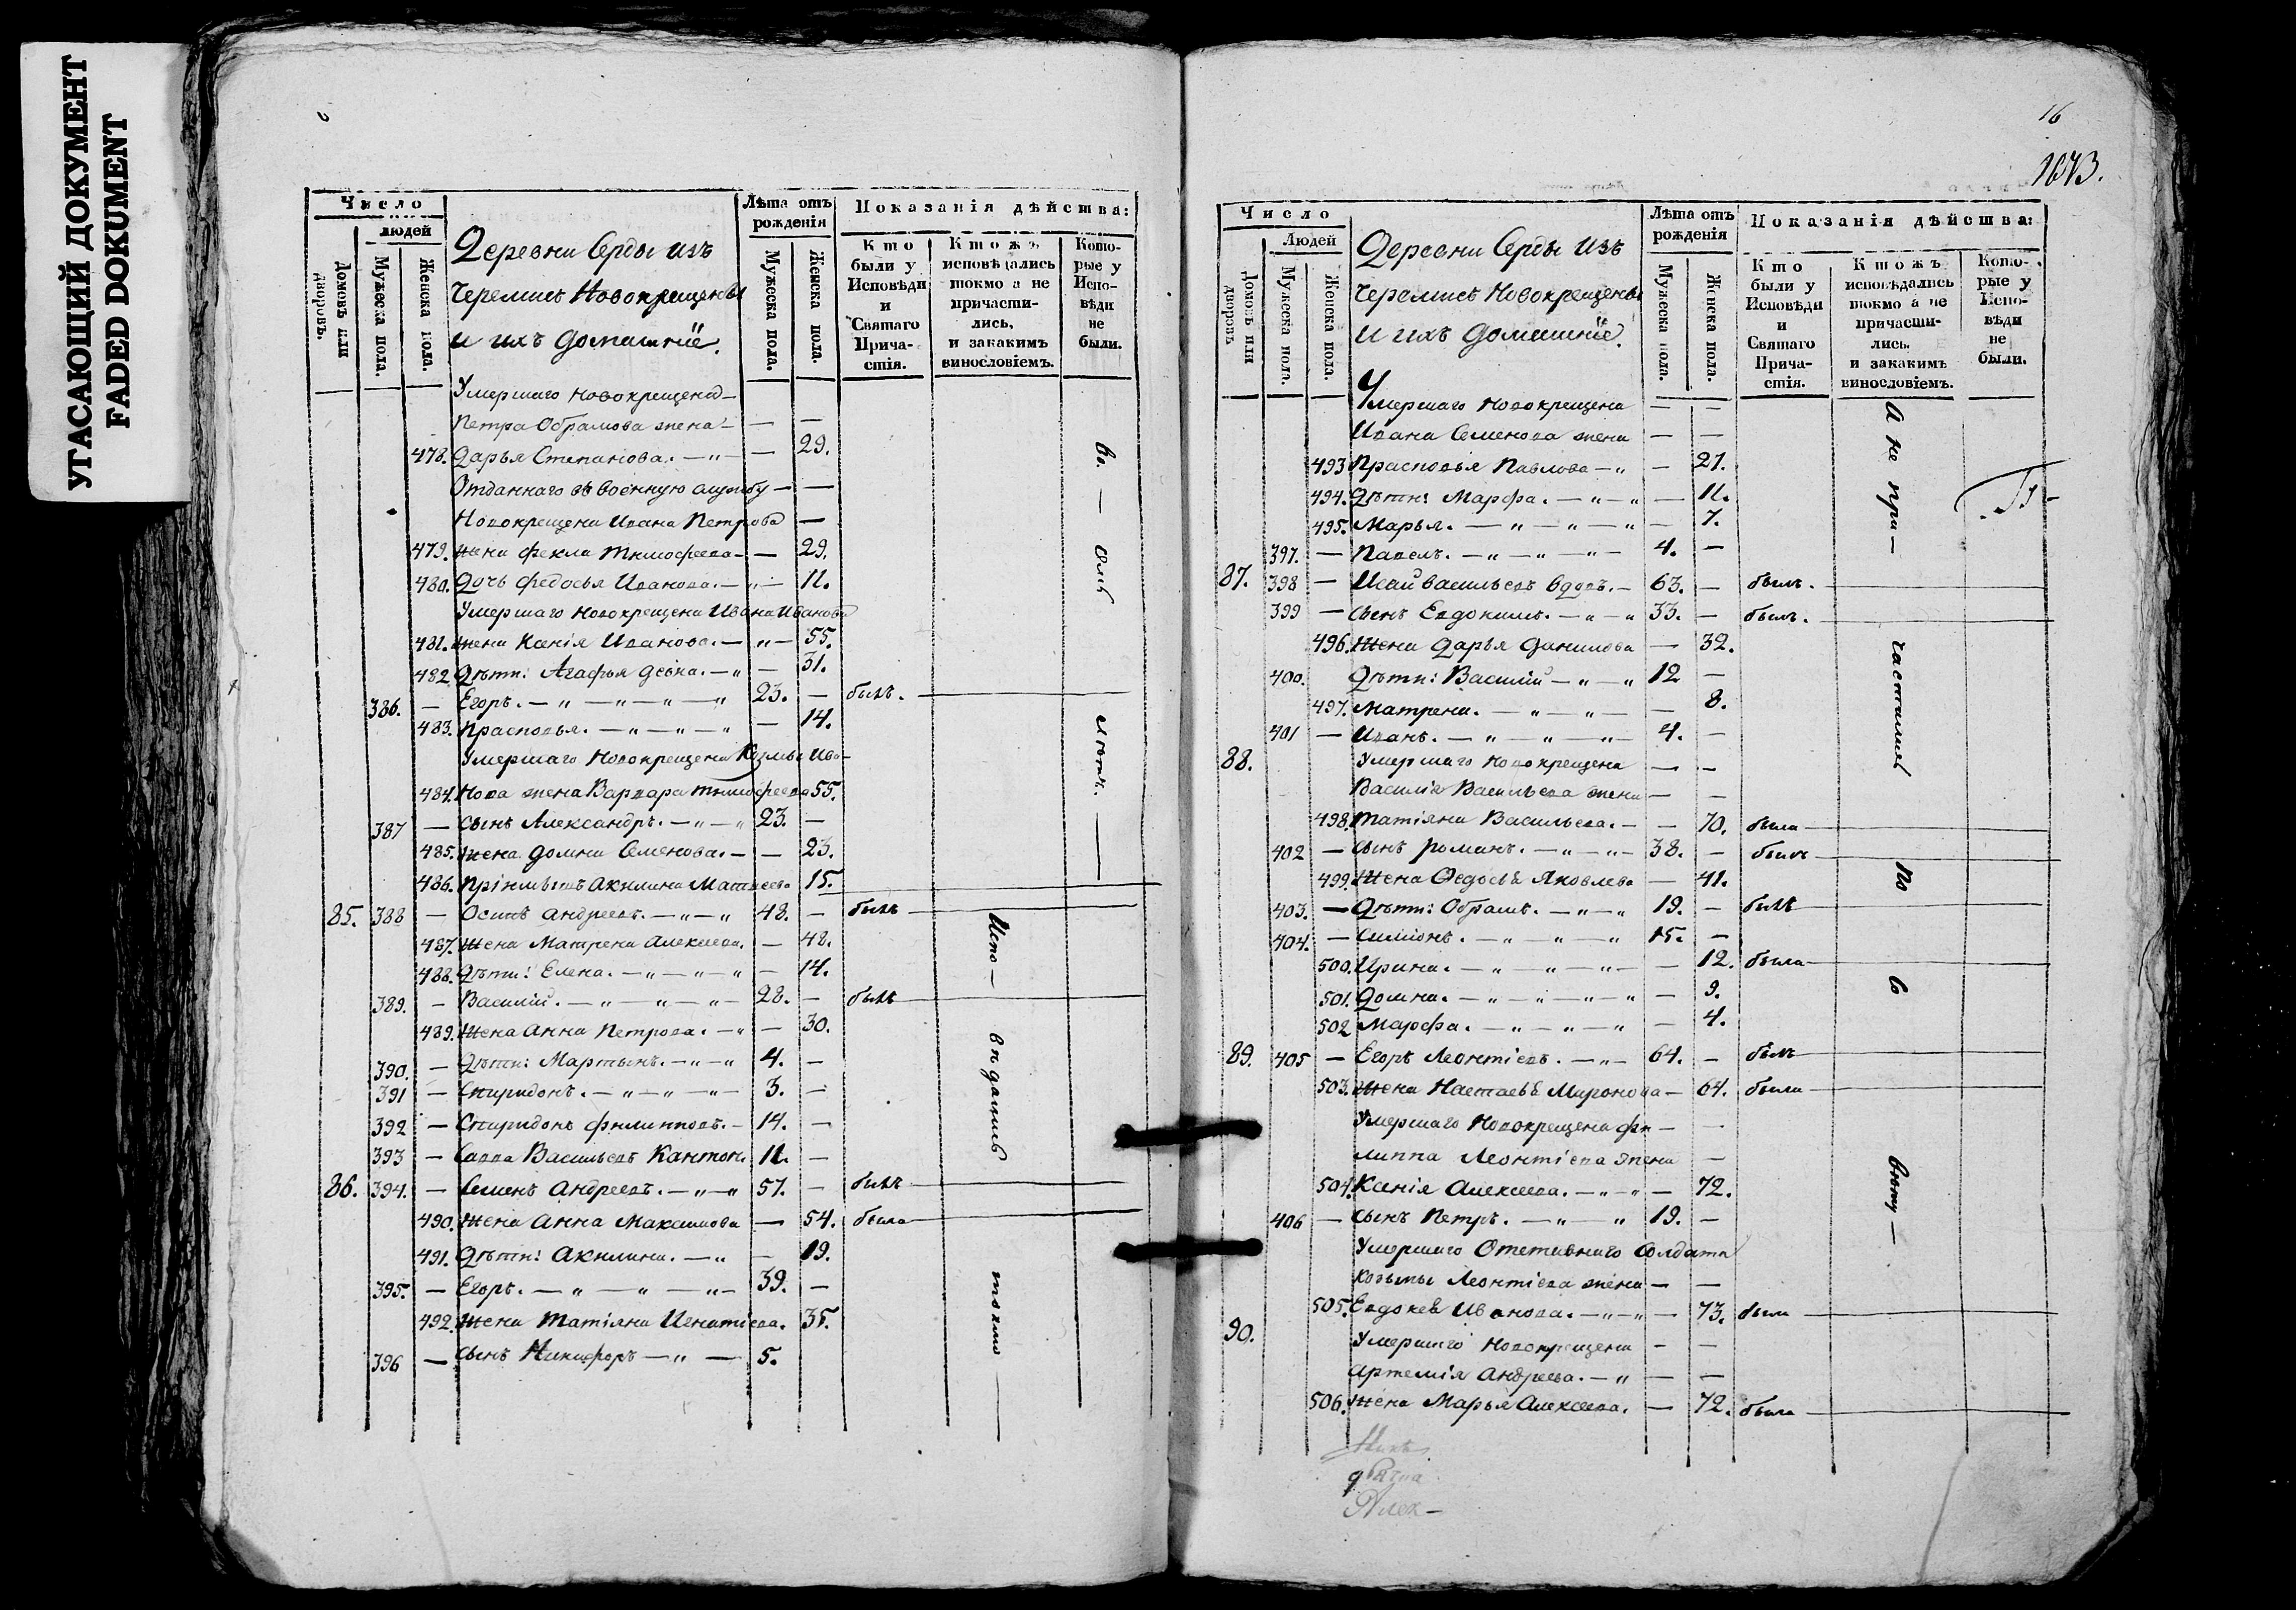 УТАСАЮЩИЙ ДОКУМЕНТ
FADED DOKUMENT
Число
людей
Домовъ или дворовъ.
Мужеска пола.
Женска пола.
Деревни Серды изъ
Черемисъ Новокрещены
и ихъ домашніе.
Лѣта отъ рожденія
Мужеска пола.
Женска пола.
Показанія дѣйства:
Кто были у Исповѣди и Святаго Причастія.
Ктожъ исповѣдались токмо а не причастились, и закакимъ винословіемъ.
Которые у Исповѣди не были.
Умершаго Новокрещена —
Петра Обрамова жена — — —
478. Дарья Степанова. — „ — — 29.
Отданнаго въ военную службу — —
Новокрещена Ивана Петрова —
479. жена Фекла Тимофеева — — 29.
480. Дочь Федосья Иванова. — „ — 11.
Умершаго Новокрещена Ивана Иванова
481. жена Ксенія Иванова. — „ — 55.
482. Дѣти: Агафья девка. — „ — 31.
386. — Егоръ. — „ — „ — „ — „ 23. — былъ.
483. Прасковья. — „ — „ — „ — 14.
Умершаго Новокрещена Козмы Ива-
484. нова жена Варвара Тимофеева 55.
387 — сынъ Александръ. — „ — „ 23. —
485. жена Домна Семенова. — — 23.
486. Пріимышъ Акилина Матвеева 15.
85. 388 — Осипъ Андреевъ. — „ — „ 48. — былъ
487. Жена Матрена Алексеева. — 48.
488. Дѣти: Елена. — „ — „ — „ — 14.
389. — Василій. — „ — „ — „ — 28. — былъ
489. Жена Анна Петрова. — „ — 30.
390. — Дѣти: Мартынъ. — „ — „ 4. —
391 — Спиридонъ. — „ — „ — „ — 3. —
392 — Спиридонъ Филипповъ. — 14. —
393 — Савва Васильевъ Кантон. 11. —
86. 394. — Семенъ Андреевъ. — „ — „ 57. — былъ
490. Жена Анна Максимова — 54. была
491. Дѣти: Акилина. — „ — 19.
395. — Егоръ. — „ — „ — „ — 39. —
492. Жена Татіяна Игнатіева. 35.
396 — сынъ Никифоръ — „ — 5.
Испо — вѣдались токмо
16
1673.
Число
Людей
Домовъ или дворовъ
Мужеска пола.
Женска пола.
Деревни Серды изъ
Черемисъ Новокрещены
и ихъ домашніе.
Лѣта отъ рожденія
Мужеска пола.
Женска пола.
Показанія дѣйства:
Кто были у Исповѣди и Святаго Причастія.
Ктожъ исповѣдались токмо а не причастились. и закакимъ винословіемъ.
Которые у Исповѣди не были.
Умершаго Новокрещена — —
Ивана Семенова жена — —
493 Прасковья Павлова — „ — 27.
494. Дѣти: Марфа. — „ — „ — 11.
495. Марья. — „ — „ — „ — 7.
397. — Павелъ. — „ — „ — „ — 4. —
87. 398 — Исай Васильевъ вдовъ. — 63. — былъ.
399 — сынъ Евдокимъ. — „ — „ 33. — былъ.
496. Жена Дарья Данилова — 32.
400. Дѣти: Василій — „ — „ 12 —
497. Матрена. — „ — „ — — 8.
401 — Иванъ. — „ — „ — „ — 4. —
88. Умершаго Новокрещена — —
Василія Васильева жена — —
498. Татіяна Васильева. — — 70. была
402 — сынъ Романъ. — „ — „ — 38. — былъ
499. Жена Федосья Яковлева — 41.
403. — Дѣти: Обрамъ. — „ — „ 19. — былъ
404. — Симіонъ. — „ — „ — „ 15. —
500. Ирина. — „ — „ — „ — — 12. была
501. Домна. — „ — „ — „ — „ — 9.
502 Марфа. — „ — „ — „ — 4.
89. 405 — Егоръ Леонтіевъ. — „ — 64. — былъ
503. Жена Настасья Миронова — 64. была
Умершаго Новокрещена Фи — —
липпа Леонтіева жена —
504. Ксенія Алексеева. — „ — „ — 72.
406 — сынъ Петръ. — „ — „ 19. —
Умершаго Отставнаго Солдата
Козьмы Леонтіева жена — —
505. Евдокея Иванова. — „ — „ — 73. была
90. Умершаго Новокрещена — —
Артемія Андреева. — „ — —
506. жена Марья Алексеева. — 72. была
А не при — частились по со вѣту —